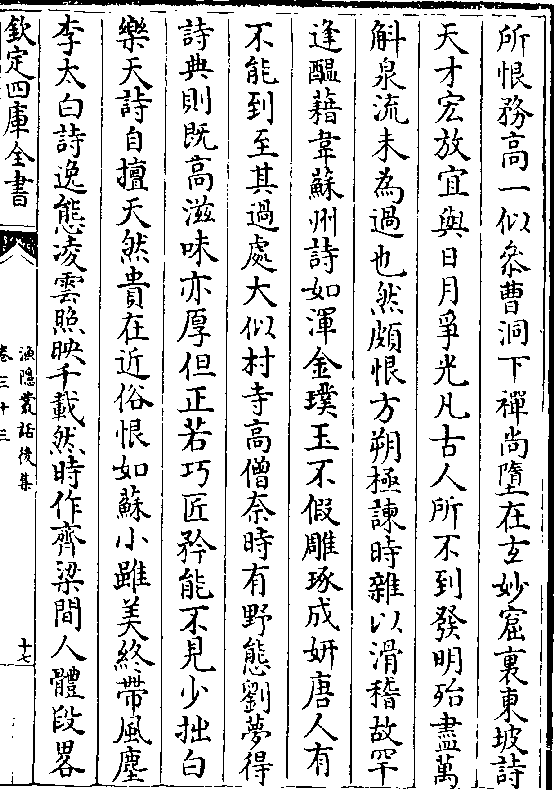 所恨務高一似叅曹洞下禪尚墮在𤣥妙窟裏東坡詩
天才宏放宜與日月爭光凡古人所不到發明殆盡萬
斛泉流未為過也然頗恨方朔極諫時雜以滑稽故罕
逢醖藉韋蘇州詩如渾金璞玉不假雕琢成妍唐人有
不能到至其過處大似村寺高僧奈時有野態劉夢得
詩典則既高滋味亦厚但正若巧匠矜能不見少拙白
樂天詩自擅天然貴在近俗恨如蘇小雖美終帶風塵
李太白詩逸態凌雲照映千載然時作齊梁間人體段畧
欽定四庫全書
漁隱叢話後集
卷三十三
十七